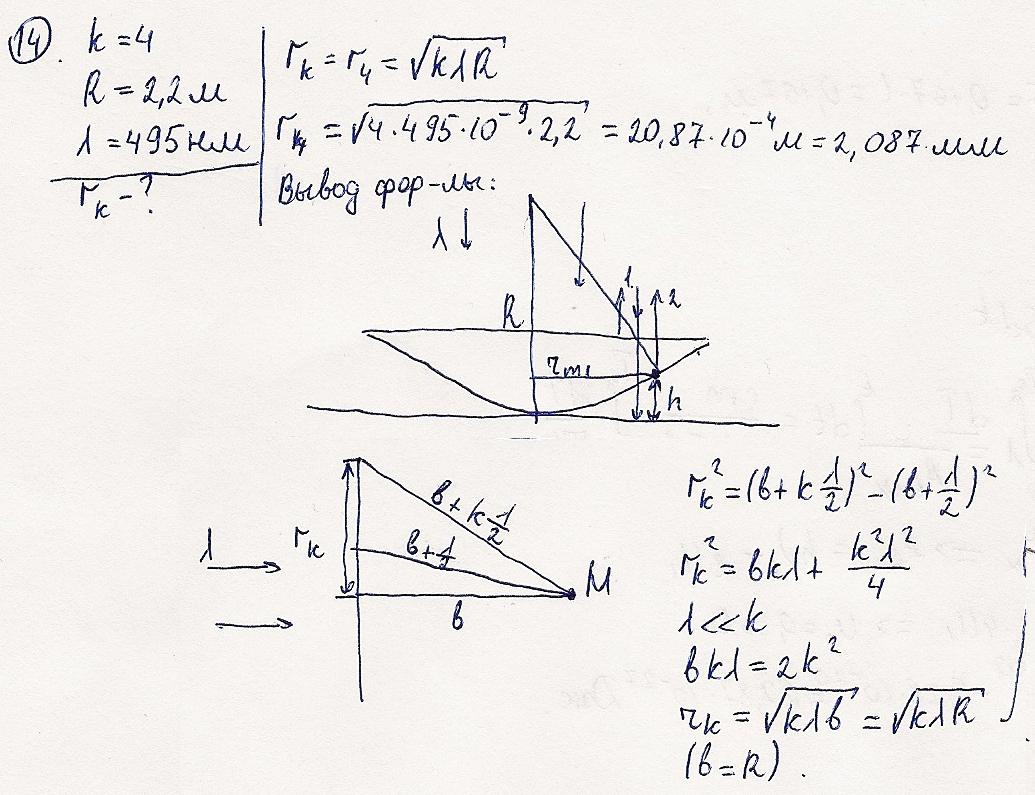 14. k = 4
R = 2,2 м
λ = 495 нм
r_k - ?
r_k = r_4 = √(kλR)
r_k4 = √(4·495·10⁻⁹·2,2) = 20,87·10⁻⁴ м = 2,087 мм
Вывод фор-лы:
λ
1
2
R
r_m
h
λ
r_k
в + k λ/2
в + λ/2
в
M
r_k² = (в + k λ/2)² - (в + λ/2)²
r_k² = вkλ + k²λ²/4
λ << k
вkλ = r k²
r_k = √(kλв) = √(kλR)
(в = R).